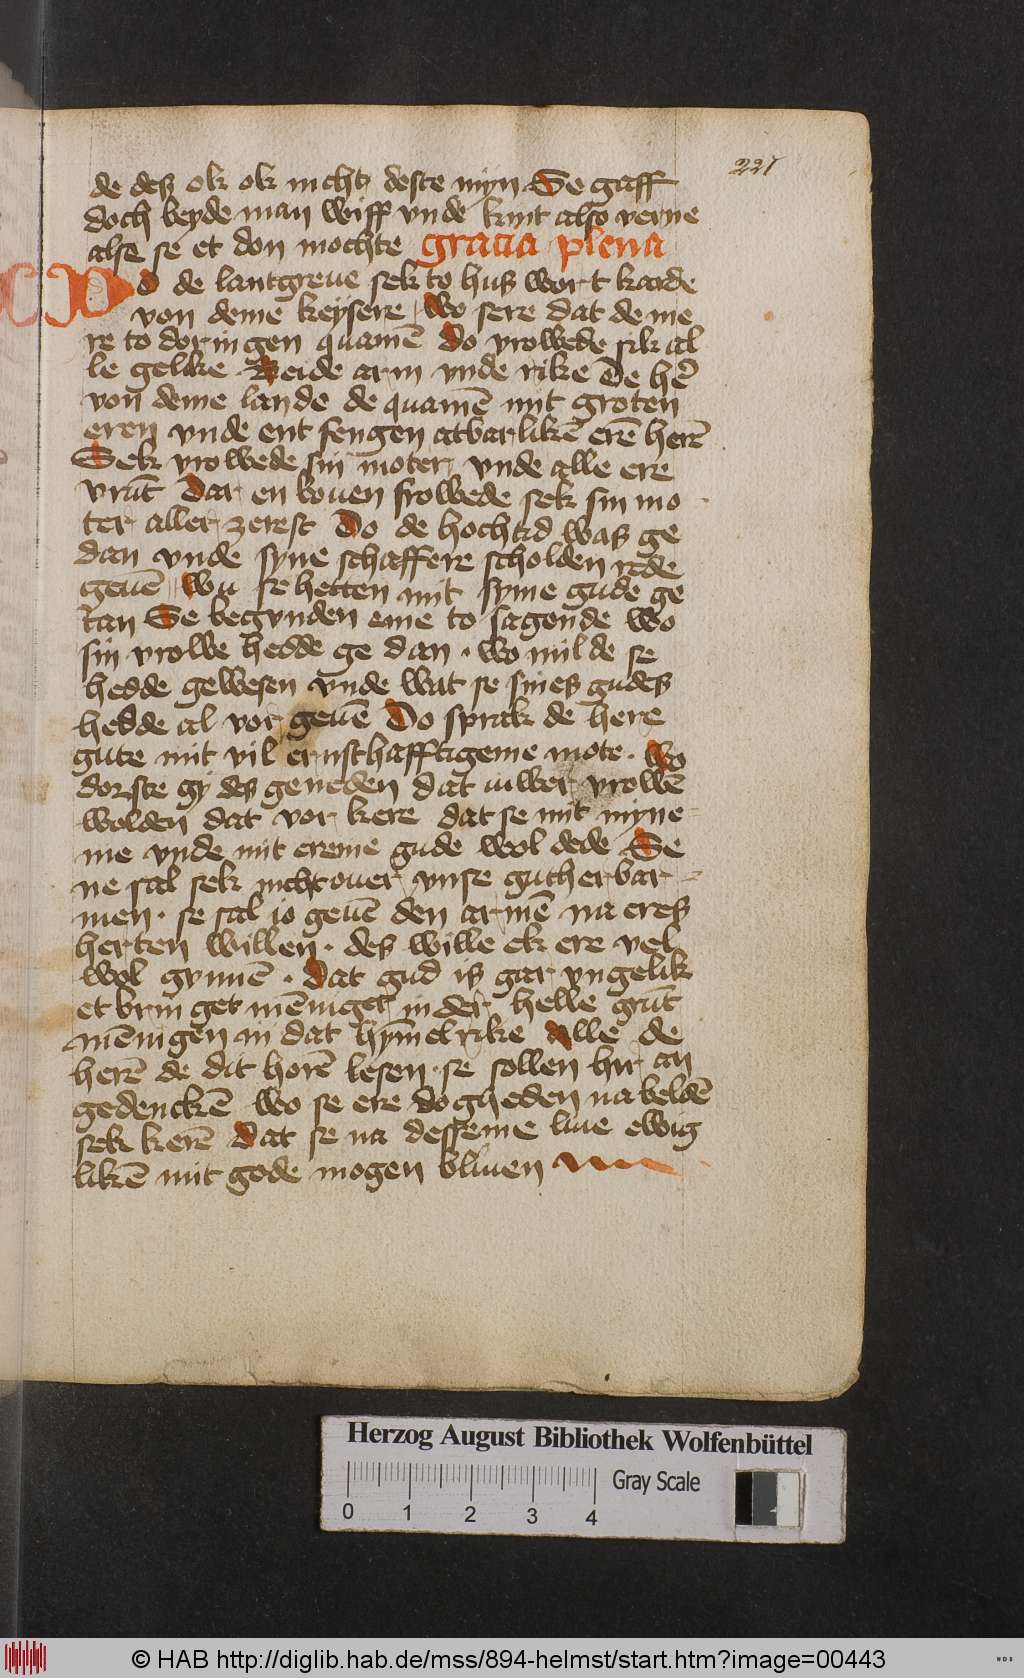 221
de des ok ok nicht deste myn Se gaff
doch beyde man wiff vnde kint also verne
alse se et don mochte gracia plena
Do de lantgreue sek to hus wort karde
von deme keysere wo sere dat de me
re to doringen quamē do vrowede sik al
le gelike Beide arm vnde rike De hēr
von deme lande de quamē mit groten
eren vnde ent fengen atbarlikē erē herē
Sek vrowede sin moter vnde alle ere
vrūt Dar en bouen frowede sek sin mo
ter aller zerest Do de hochtid was ge
dan vnde syne schaffere scholden rede
geuē wu se hetten mit syme gude ge
tan Se begynden eme to sagende wo
sin vrowe hedde ge dan . wo milde se
hedde gewesen vnde wat se sines gudes
hedde al vor geuē Do sprak de here
gute mit vil ernsthafftigeme mote . wo
dorste gy des geneden dat iuwer vrowē
wolden dat vor kere dat se mit myne
me vnde mit ereme gude wol dede Se
ne sal sek nicht ouer vnse gut herbar
men . se sal io geuē den armē na eres
herten willen . des wille ek ere vel
wol gynnē . dat gud is gar vngelik
et bringet mēniger in der helle grūt
mēnigen in dat hȳmelrike alle de
herē de dit horē lesen . se sollen hir an
gedenckē wo se ere dogheden na beldē
sek kerē dat se na desseme liue ewig
likē mit gode mogen bliuen
Herzog August Bibliothek Wolfenbüttel
Gray Scale
0 1 2 3 4
© HAB http://diglib.hab.de/mss/894-helmst/start.htm?image=00443